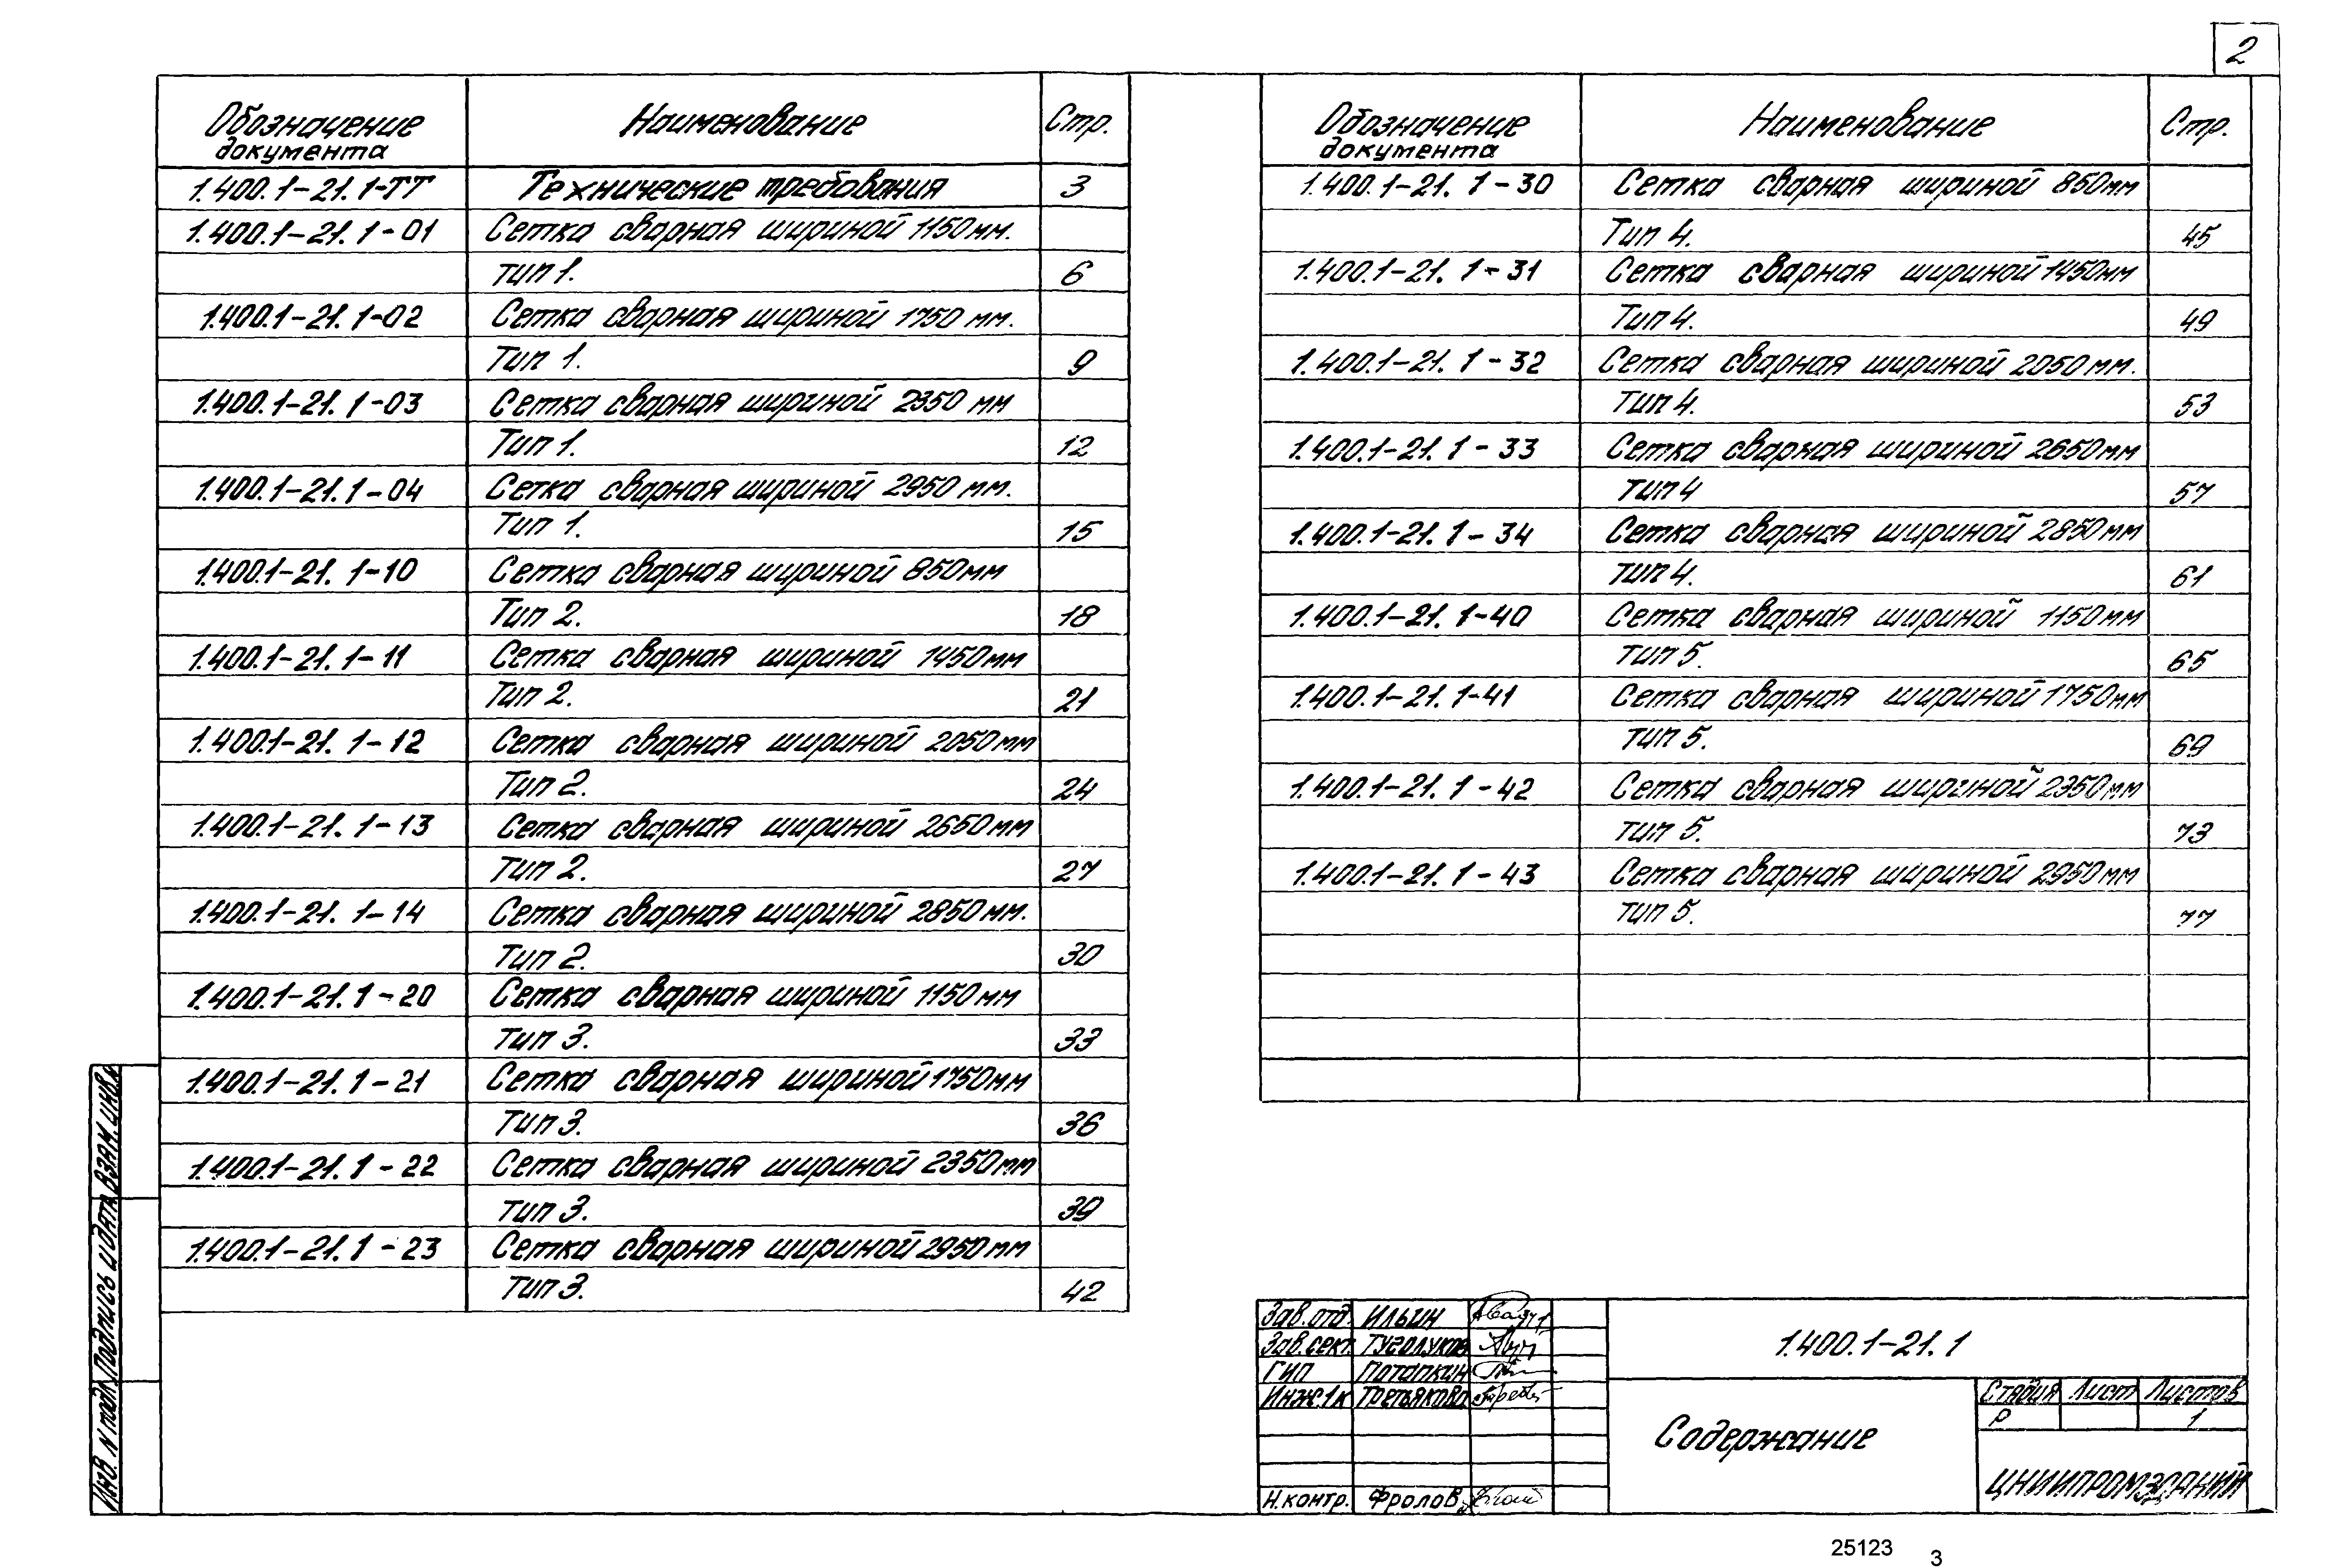 2
Обозначение документа Наименование Стр.
1.400.1-21.1-ТТ Технические требования 3
1.400.1-21.1-01 Сетка сварная шириной 1150мм.
тип 1. 6
1.400.1-21.1-02 Сетка сварная шириной 1750 мм.
Тип 1. 9
1.400.1-21.1-03 Сетка сварная шириной 2350 мм
Тип 1. 12
1.400.1-21.1-04 Сетка сварная шириной 2950 мм.
Тип 1. 15
1.400.1-21.1-10 Сетка сварная шириной 850мм
Тип 2. 18
1.400.1-21.1-11 Сетка сварная шириной 1450мм
Тип 2. 21
1.400.1-21.1-12 Сетка сварная шириной 2050мм
Тип 2. 24
1.400.1-21.1-13 Сетка сварная шириной 2650мм
Тип 2. 27
1.400.1-21.1-14 Сетка сварная шириной 2850мм.
Тип 2. 30
1.400.1-21.1-20 Сетка сварная шириной 1150мм
тип 3. 33
1.400.1-21.1-21 Сетка сварная шириной 1750мм
тип 3. 36
1.400.1-21.1-22 Сетка сварная шириной 2350мм
тип 3. 39
1.400.1-21.1-23 Сетка сварная шириной 2950мм
тип 3. 42
Обозначение документа Наименование Стр.
1.400.1-21.1-30 Сетка сварная шириной 850мм
Тип 4. 45
1.400.1-21.1-31 Сетка сварная шириной 1450мм
Тип 4. 49
1.400.1-21.1-32 Сетка сварная шириной 2050мм.
Тип 4. 53
1.400.1-21.1-33 Сетка сварная шириной 2650мм
тип 4 57
1.400.1-21.1-34 Сетка сварная шириной 2850мм
тип 4. 61
1.400.1-21.1-40 Сетка сварная шириной 1150мм
тип 5. 65
1.400.1-21.1-41 Сетка сварная шириной 1750мм
тип 5. 69
1.400.1-21.1-42 Сетка сварная шириной 2350мм
тип 5. 73
1.400.1-21.1-43 Сетка сварная шириной 2950мм
тип 5. 77
Инв. N подл. Подпись и дата Взам. инв.N
Зав.отд. Ильин
Зав.сект. Туголуков
ГИП Потапкин
Инж.1к Третьякова
Н.контр. Фролов
1.400.1-21.1
Содержание
Стадия Лист Листов
Р 1
ЦНИИПРОМЗДАНИЙ
25123 3